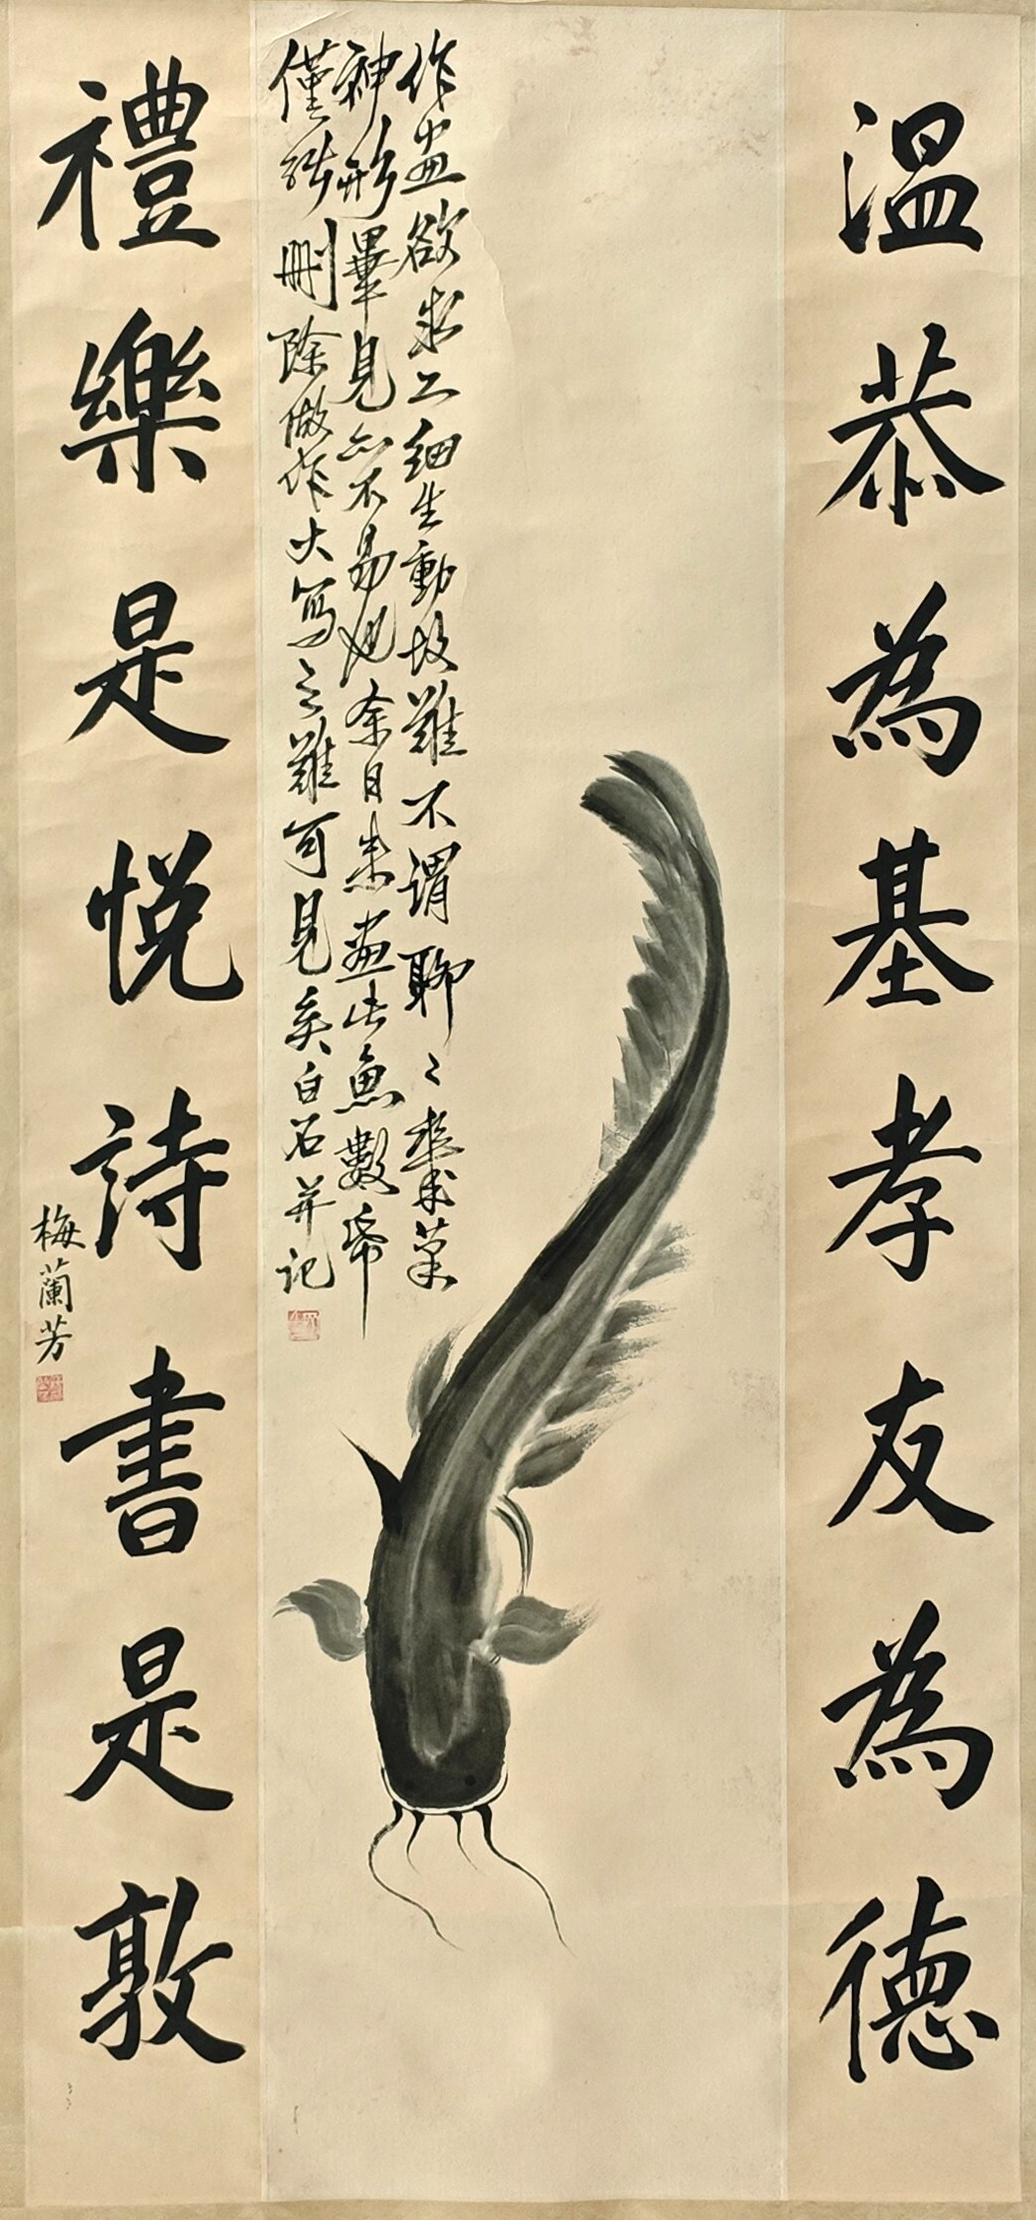 溫恭為基孝友為德
作畫欲求工細生動故難不謂聊聊數筆
神形畢見亦不易也余日來畫此魚數幀
僅能刪除做作大寫之難可見矣白石并記
禮樂是悅詩書是敦
梅蘭芳